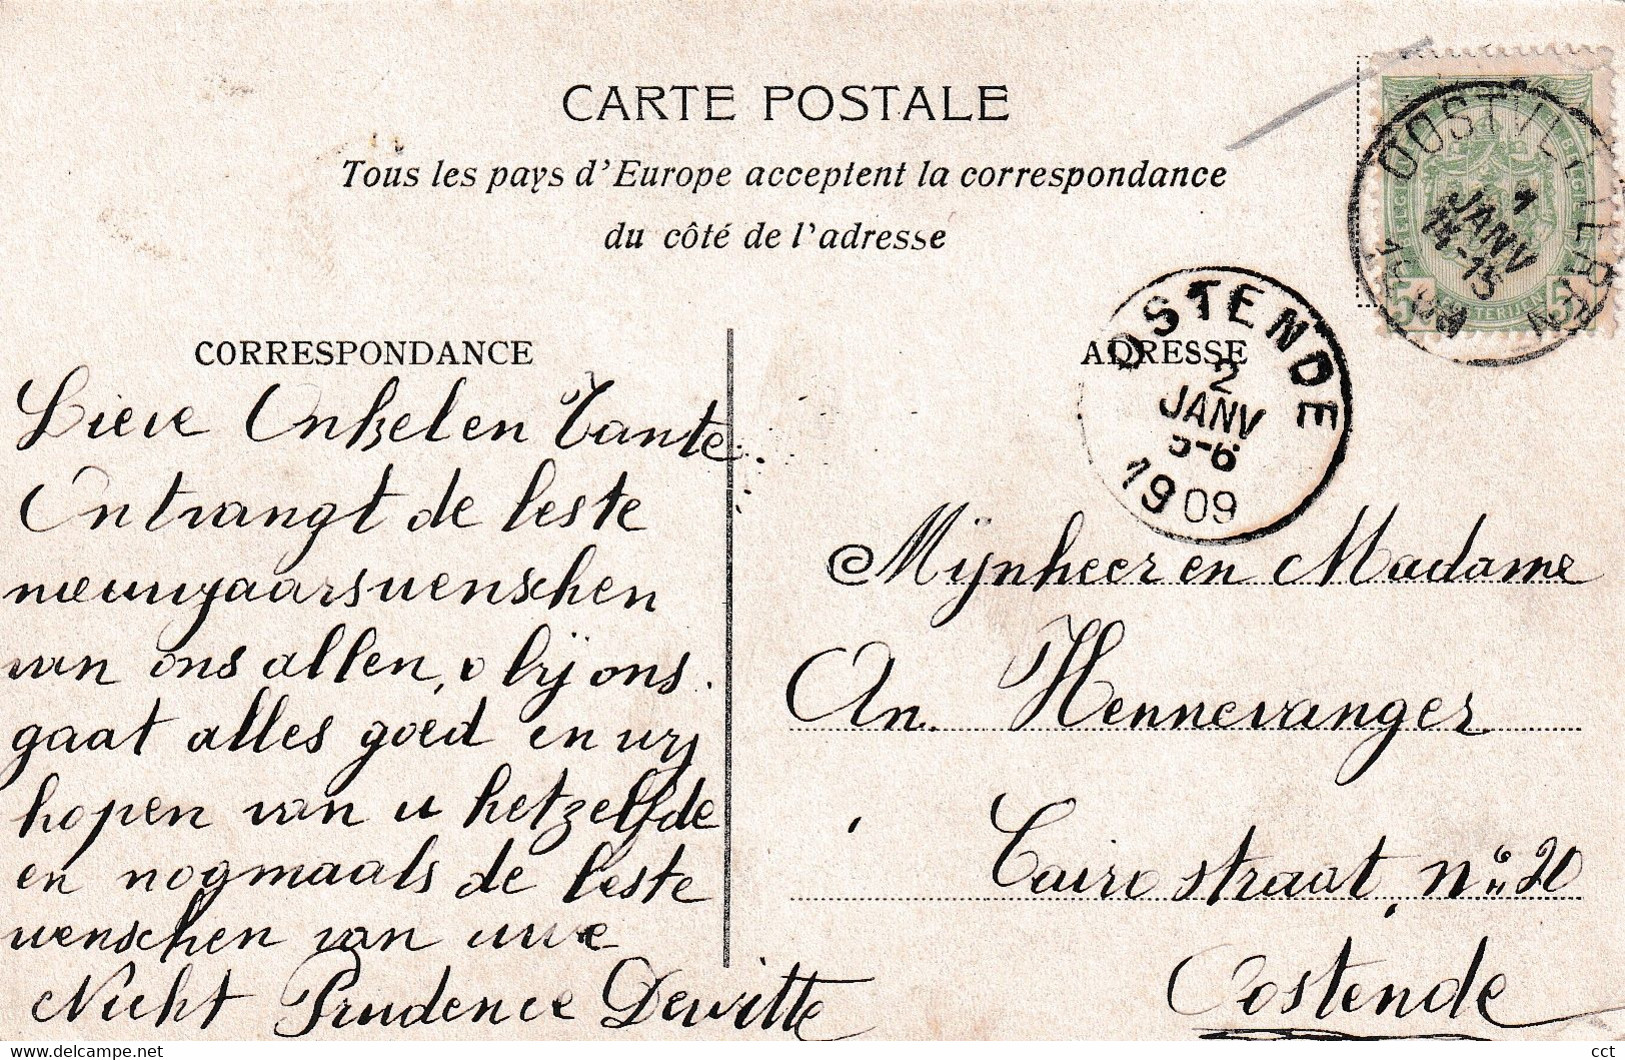 CARTE POSTALE
Tous les pays d'Europe acceptent la correspondance
du côté de l'adresse
CORRESPONDANCE
ADRESSE
OOSTVLETEREN
1
JANV
14-15
1909
OSTENDE
2
JANV
5-6
1909
Lieve Onkel en Tante.
Ontvangt de beste
nieuwjaarswenschen
van ons allen, bij ons
gaat alles goed en wij
hopen van u hetzelfde
en nogmaals de beste
wenschen van uwe
Nicht Prudence Dewitte
Mijnheer en Madame
An. Hennevanger
Cairo straat, No 20
Oostende
cct